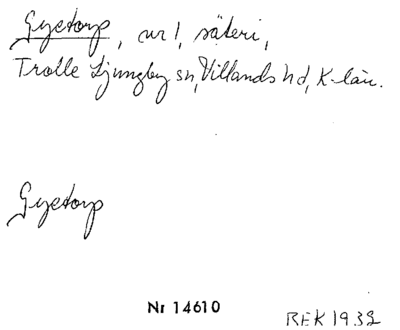 Gyetorp, ur!, säteri,
Trolle Ljungby sn, Villands hd, K-län.
Gyetorp
Nr 14610
BEK 1932